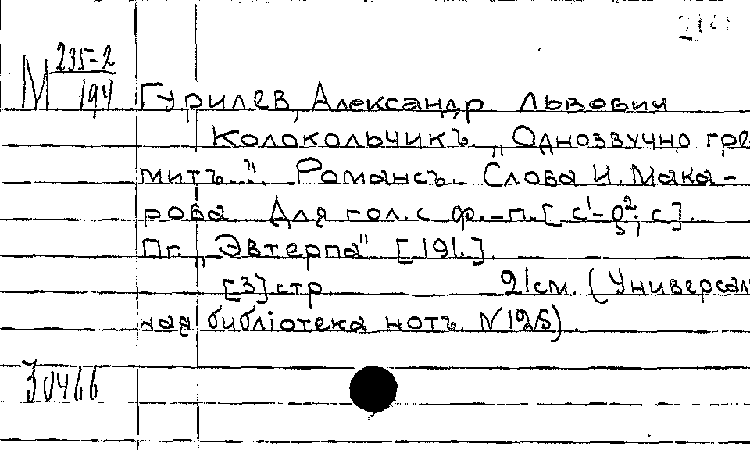 М 235-2
194
Гурилев, Александр Львович
Колокольчикъ. „Однозвучно гре
митъ..." Романсъ. Слова И. Мака-
рова. Для гол. с ф.-п.
Пг. „Эвтерпа" [191.].
[3] стр 21см. (Универсаль
ная библіотека нотъ. N 125)
30466